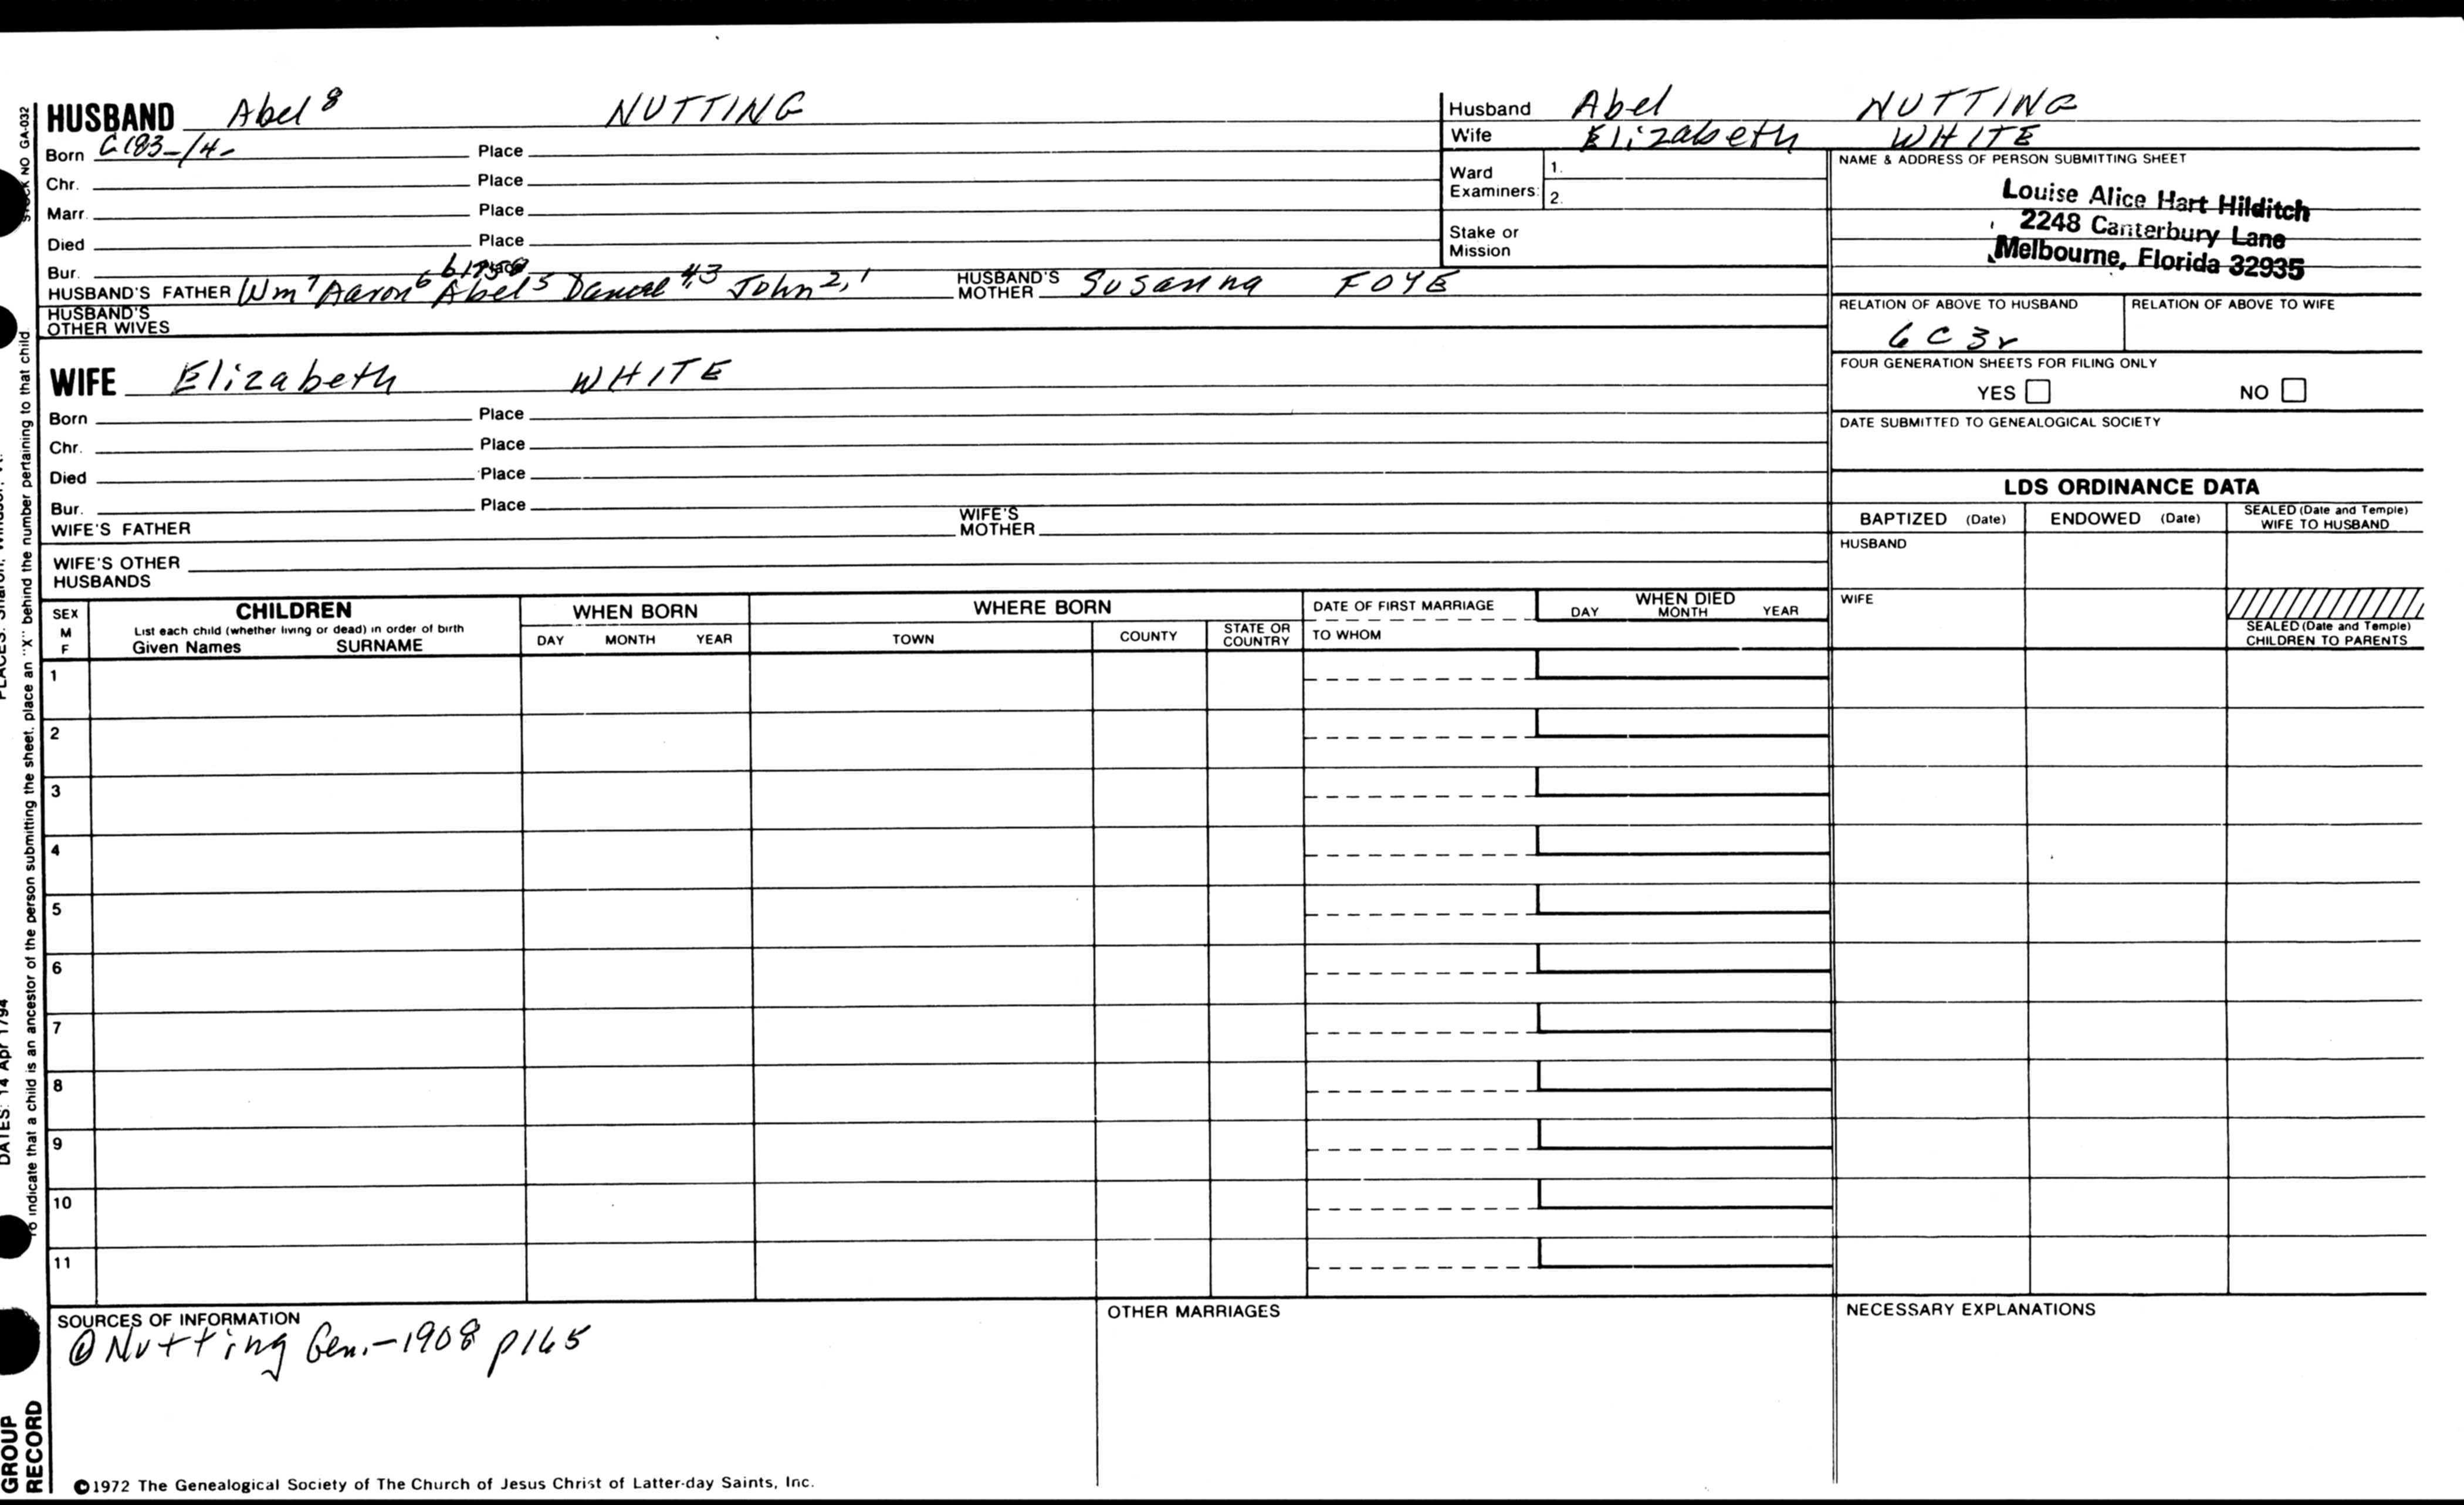 HUSBAND Abel 8 NUTTING
Born C183-/4- Place
Chr. Place
Marr. Place
Died Place
Bur. Place b1758
HUSBAND'S FATHER Wm 7 Aaron 6 Abel 5 Daniel 4,3 John 2,1 HUSBAND'S MOTHER Susanna FOYE
HUSBAND'S OTHER WIVES
WIFE Elizabeth WHITE
Born Place
Chr. Place
Died Place
Bur. Place
WIFE'S FATHER WIFE'S MOTHER
WIFE'S OTHER HUSBANDS
Husband Abel NUTTING
Wife Elizabeth WHITE
Ward Examiners: 1.
2.
Stake or Mission
NAME & ADDRESS OF PERSON SUBMITTING SHEET
Louise Alice Hart Hilditch
2248 Canterbury Lane
Melbourne, Florida 32935
RELATION OF ABOVE TO HUSBAND RELATION OF ABOVE TO WIFE
6C3r
FOUR GENERATION SHEETS FOR FILING ONLY
YES NO
DATE SUBMITTED TO GENEALOGICAL SOCIETY
LDS ORDINANCE DATA
BAPTIZED (Date) ENDOWED (Date) SEALED (Date and Temple) WIFE TO HUSBAND
HUSBAND
WIFE
SEALED (Date and Temple) CHILDREN TO PARENTS
SEX M F
CHILDREN
List each child (whether living or dead) in order of birth
Given Names SURNAME
WHEN BORN
DAY MONTH YEAR
WHERE BORN
TOWN COUNTY STATE OR COUNTRY
DATE OF FIRST MARRIAGE
TO WHOM
WHEN DIED
DAY MONTH YEAR
1
2
3
4
5
6
7
8
9
10
11
SOURCES OF INFORMATION
① Nutting Gen.-1908 p165
OTHER MARRIAGES
NECESSARY EXPLANATIONS
©1972 The Genealogical Society of The Church of Jesus Christ of Latter-day Saints, Inc.
STOCK NO GA-032
To indicate that a child is an ancestor of the person submitting the sheet, place an "X" behind the number pertaining to that child
DATES: 14 Apr 1794
GROUP
RECORD